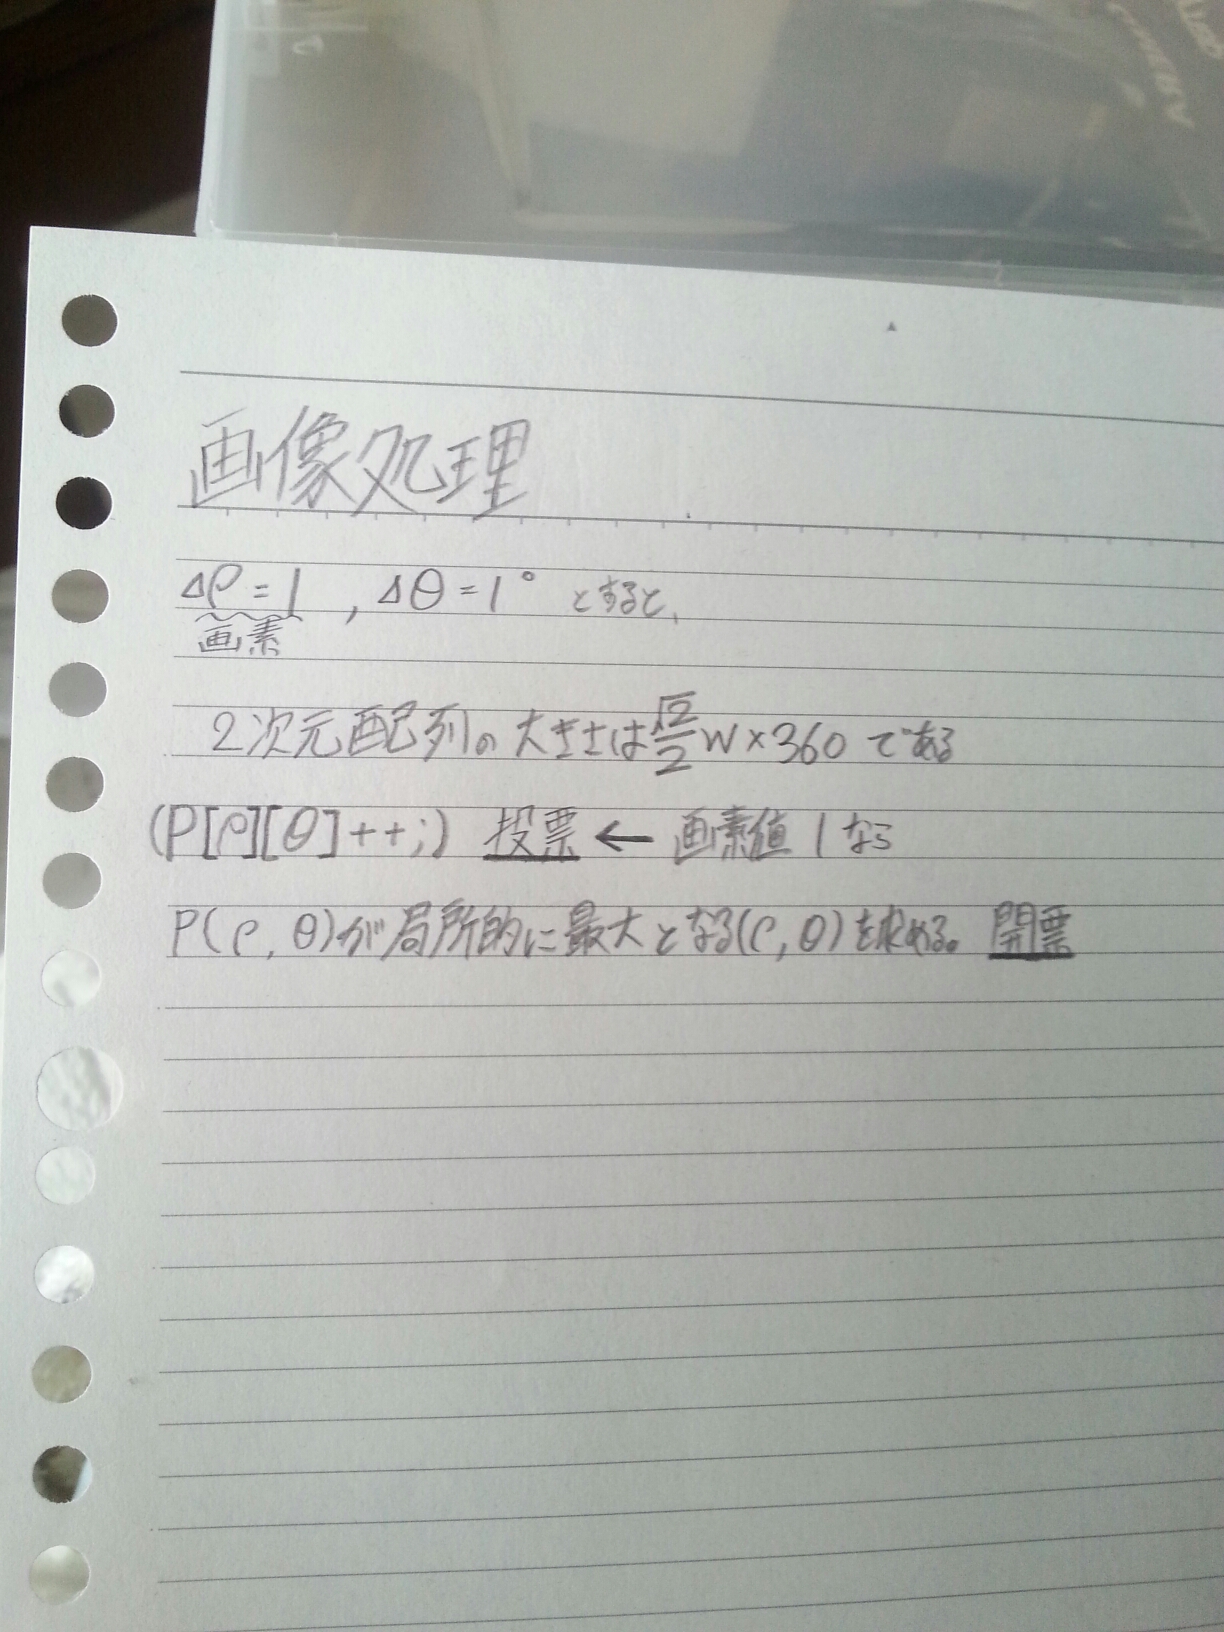 画像処理
Δρ=1 , Δθ=1° とすると、
画素
2次元配列の大きさは√2/2 W×360 である
(P[ρ][θ]++;) 投票 ← 画素値 1 なら
P(ρ, θ)が局所的に最大となる(ρ, θ)を求める。 開票